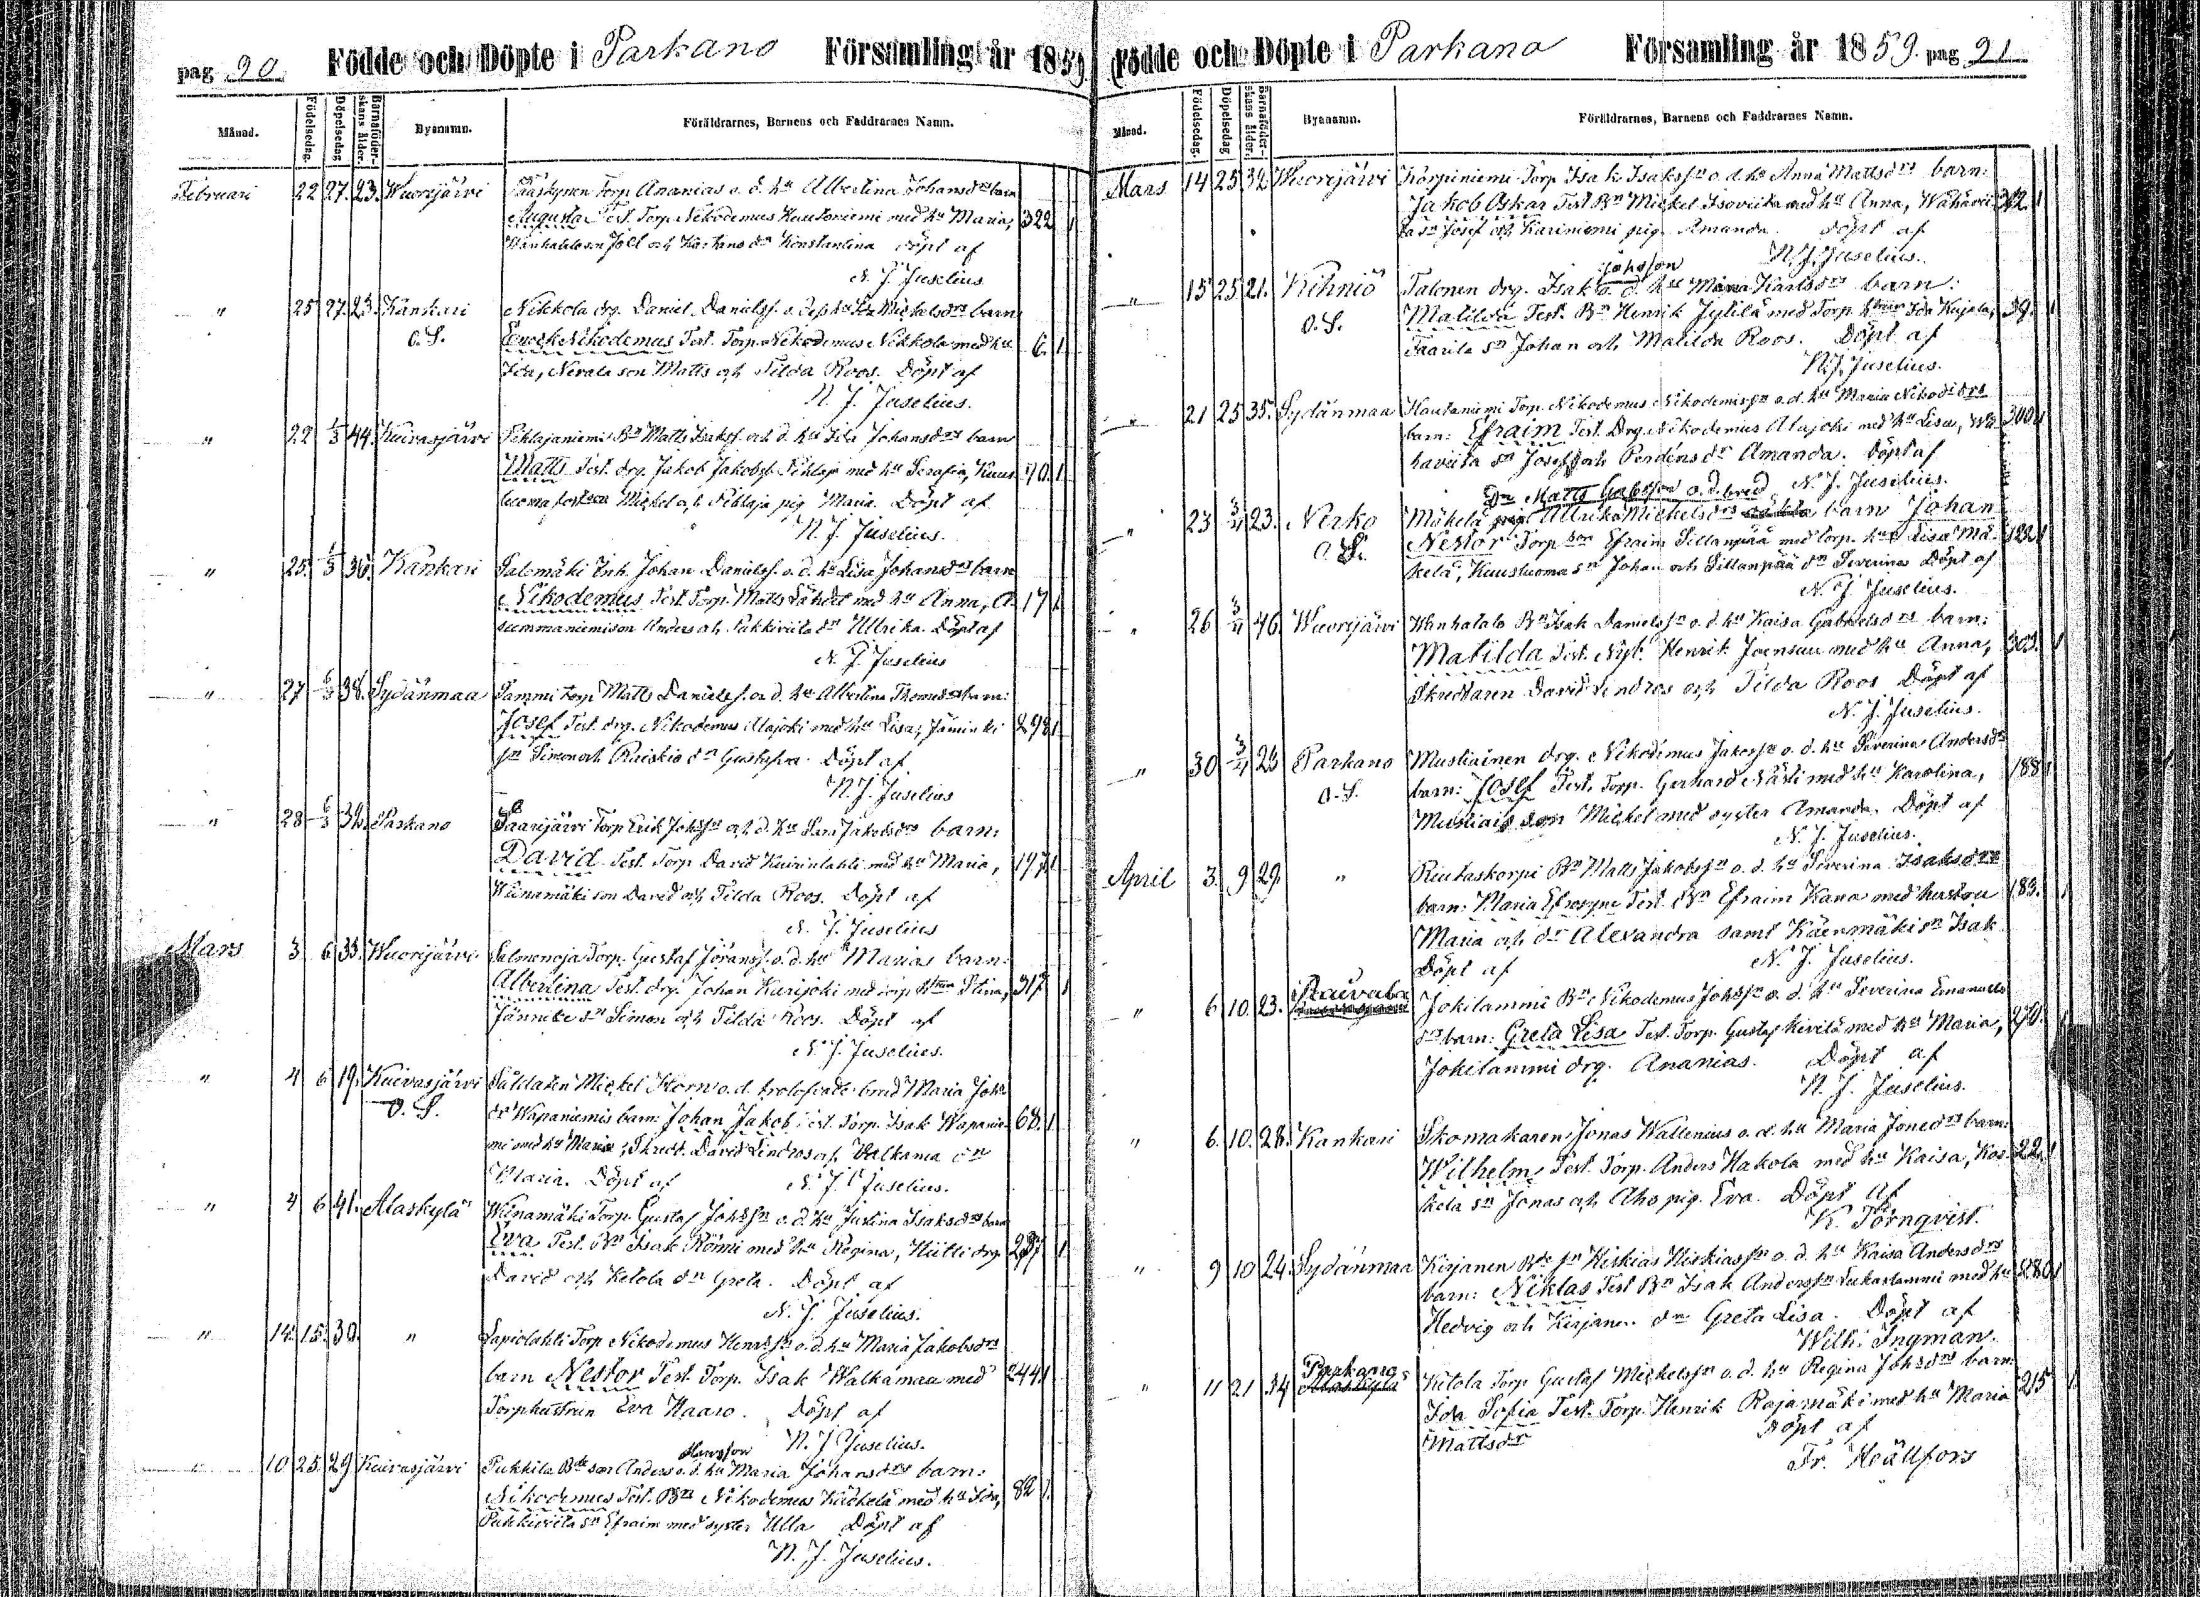 pag 90. Födde och Döpte i Parkano Församling år 1859
Månad. Födelsedag. Döpelsedag Barnaföderskans ålder. Byanamn. Föräldrarnes, Barnens och Faddrarnes Namn.
Februari 22 27. 23. Wuorijärvi Torp. Ananias o. d. hu Albertina Johansdrs barn
Augusta Test. Torp. Nikodemus Hautoniemi med hu Maria, 322 1
och dr Konstantina Döpt af
N. J. Juselius
" 25 27. 23. Kankari Nikkola drg. Daniel Danielss. o. d. hu Ida Michelsdrs barn
O. S. Enock Nikodemus Test. Torp. Nikodemus Nikkola med hu 6. 1
Ida, Nevala son Matts och Tilda Roos. Döpt af
N. J. Juselius.
" 22 1/3 44. Kuivasjärvi Pihlajaniemi Bn Matts Isakss. och d. hu Johansdrs barn
Matts Test. drg. Jakob Jakobss. Pihlaja med hu Serafia, Kuus 70. 1
luoma Michel och Pihlaja pig. Maria. Döpt af
N. J. Juselius.
" 25. 1/3 36. Kankari Salomäki Inh. Johan Danielss. o. d. hu Lisa Johansdrs barn
Nikodemus Test. Torp. Matts Lähdet med hu Anna, A. 17 1
summaniemi son Anders och Pukkiviita dr Ullrika. Döpt af
N. J. Juselius
" 27 6/3 38. Sydänmaa Sammi Torp Matts Danielss. o. d. hu Albertina Thomasdrs barn:
Josef Test. drg. Nikodemus Alajoki med hu Lisa, Jäminki 298 1
sn Simon och Raiskio dr Gustafva. Döpt af
N. J. Juselius
" 28 6/3 Parkano Saarijärvi Torp Erik Johssn och d. hu Sara Jakobsdrs barn:
David Test. Torp David Kuivinlahti med hu Maria, 197 1
Wäinämäki son David och Tilda Roos. Döpt af
N. J. Juselius
Mars 3 6 33. Wuorijärvi Salmenoja Torp. Gustaf Göranss. o. d. hu Marias barn:
Albertina Test. drg. Johan Karijoki med torp. hstrun Stina, 317 1
sn Simon och Tilda Roos. Döpt af
N. J. Juselius.
" 4 6 19. Kuivasjärvi Soldaten Michel Horn o. d. trolofvade brud Maria Johs
O. S. dr Wapaniemis barn: Johan Jakob Test. Torp. Isak Wapanie- 68. 1
mi med hu Maria, Skredd. David Lindros och Valkama dr
Maria. Döpt af N. J. Juselius.
" 4 6 41. Alaskylä Wäinämäki Torp. Gustaf Johssn o. d. hu Justina Isaksdrs barn
Eva Test. Bn Isak Römi med hu Regina, Hütti drg. 237 1
David och Ketola dr Greta. Döpt af
N. J. Juselius.
" 14. 15. 30. " Lapiolahti Torp Nikodemus Henrssn o. d. hu Maria Jakobsdrs
barn Nestor Test. Torp. Isak Walkamaa med 244 1
Torphustrun Eva Haaro. Döpt af
N. J. Juselius.
" 10 25. 29 Kuivasjärvi Pukkila Bde son Anders Hansson o. d. hu Maria Johansdrs barn:
Nikodemus Test. Bn Nikodemus Käckelä med hu Ida, 82 1
Pukkiviita sn Efraim med syster Ulla Döpt af
N. J. Juselius.
Födde och Döpte i Parkano Församling år 1859. pag 91
Månad. Födelsedag. Döpelsedag Barnaföderskans ålder. Byanamn. Föräldrarnes, Barnens och Faddrarnes Namn.
Mars 14 25 32 Wuorijärvi Korpiniemi Torp Isak Isakssn o. d. hu Anna Mattsdrs barn:
Jakob Oskar Test Bn Michel Isoviita med hu Anna, Wähävii- 342. 1
ta sn Josef och Kariniemi pig. Amanda. Döpt af
N. J. Juselius.
" 15 25 21. Kihniö Talonen drg. Isak Johsson o. d. hu Maria Karlsdrs barn:
O. S. Matilda Test. Bn Henrik Jylilä med Torp. hstrun Ida Kujala, 39. 1
Taarila sn Johan och Matilda Roos. Döpt af
N. J. Juselius.
" 21 25 35. Sydänmaa Hautaniemi Torp. Nikodemus Nikodemissn o. d. hu Maria Nikodsdrs
barn: Efraim Test. Drg. Nikodemus Alajoki med hu Lisa, Wä- 300 1
häviita sn Josef och dr Amanda. Döpt af
N. J. Juselius.
" 23 3/4 23. Nerko Mäkelä Dr Matts Gabrsson o. d. brud Ullrika Michelsdrs barn Johan
O. S. Nestor Torp son Efraim Sillanpää med torp. hu Lisa Mä- 122 1
kelä, Kuusluoma sn Johan och Sillanpää dr Severina Döpt af
N. J. Juselius.
" 26 3/4 46. Wuorijärvi Wanhatalo Bn Isak Danielssn o. d. hu Kaisa Gabrielsdrs barn:
Matilda Test. Nyb. Henrik Joensuu med hu Anna, 303. 1
Skreddaren David Lindros och Tilda Roos Döpt af
N. J. Juselius.
" 30 3/4 23 Parkano Mustiainen drg. Nikodemus Jakobssn o. d. hu Severina Andersdrs
O. S. barn: Josef Test. Torp. Gerhard Närli med hu Karolina, 188 1
Mustiais son Michel med syster Amanda. Döpt af
N. J. Juselius.
April 3. 9 29. " Riutaskorpi Bn Matts Jakobssn o. d. hu Severina Isaksdrs
barn: Maria Efrosyne Test. Bn Efraim Kana med hustru 183. 1
Maria och dr Alexandra samt Käenmäki sn Isak
Döpt af N. J. Juselius.
" 6 10. 23. Jokilammi Bn Nikodemus Johssn o. d. hu Severina Emanuels
dr barn: Greta Lisa Test. Torp. Gustaf Kivilä med hu Maria, 270. 1
Jokilammi drg. Ananias. Döpt af
N. J. Juselius.
" 6. 10. 28. Kankari Skomakaren Jonas Wallenius o. d. hu Maria Jonedrs barn:
Wilhelm Test. Torp. Anders Hakola med hu Kaisa, Kos- 22. 1
kela sn Jonas och Aho pig. Eva. Döpt af
K. Törnqvist.
" 9 10 24. Sydänmaa Kirjanen Bde sn Hiskias Hiskiassn o. d. hu Kaisa Andersdrs
barn: Niklas Test Bn Isak Anderssn Liukaslammi med hu 280 1
Hedvig och Kirjanen dr Greta Lisa. Döpt af
Wilh: Ingman.
" 11 21 34 Parkano Ketola Torp Gustaf Michelssn o. d. hu Regina Johsdrs barn: 215 1
Ida Sofia Test. Torp. Henrik Rajamäki med hu Maria
Mattsdr Döpt af
Fr. Heällfors